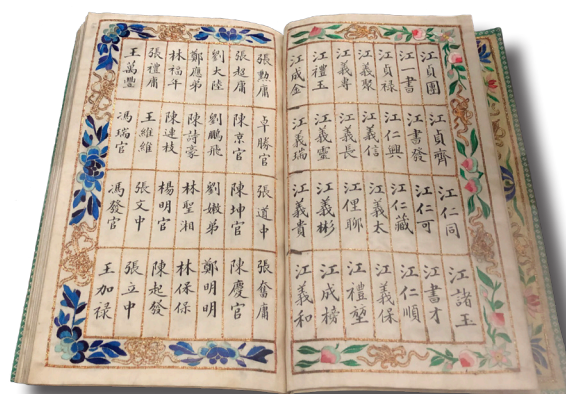 江貞團 江貞齊 江仁同 江諸玉
江一書 江書發 江仁可 江書才
江貞榛 江仁興 江仁藏 江仁順
江義聚 江義信 江義太 江義保
江義專 江義長 江俚聊 江禮堃
江禮玉 江義靈 江義彬 江成榜
江成金 江義瑞 江義貴 江義和
張勳庸 卓勝官 張道中 張奮庸
張起庸 陳京官 陳坤官 陳慶官
劉大陸 劉鵬飛 劉嫩弟 鄭明明
鄭應弟 陳詩豪 林聖湘 林保保
林福年 陳連枝 楊明官 陳起發
張禮庸 王維維 張文中 張立中
王萬豐 馮瑞官 馮發官 王加祿